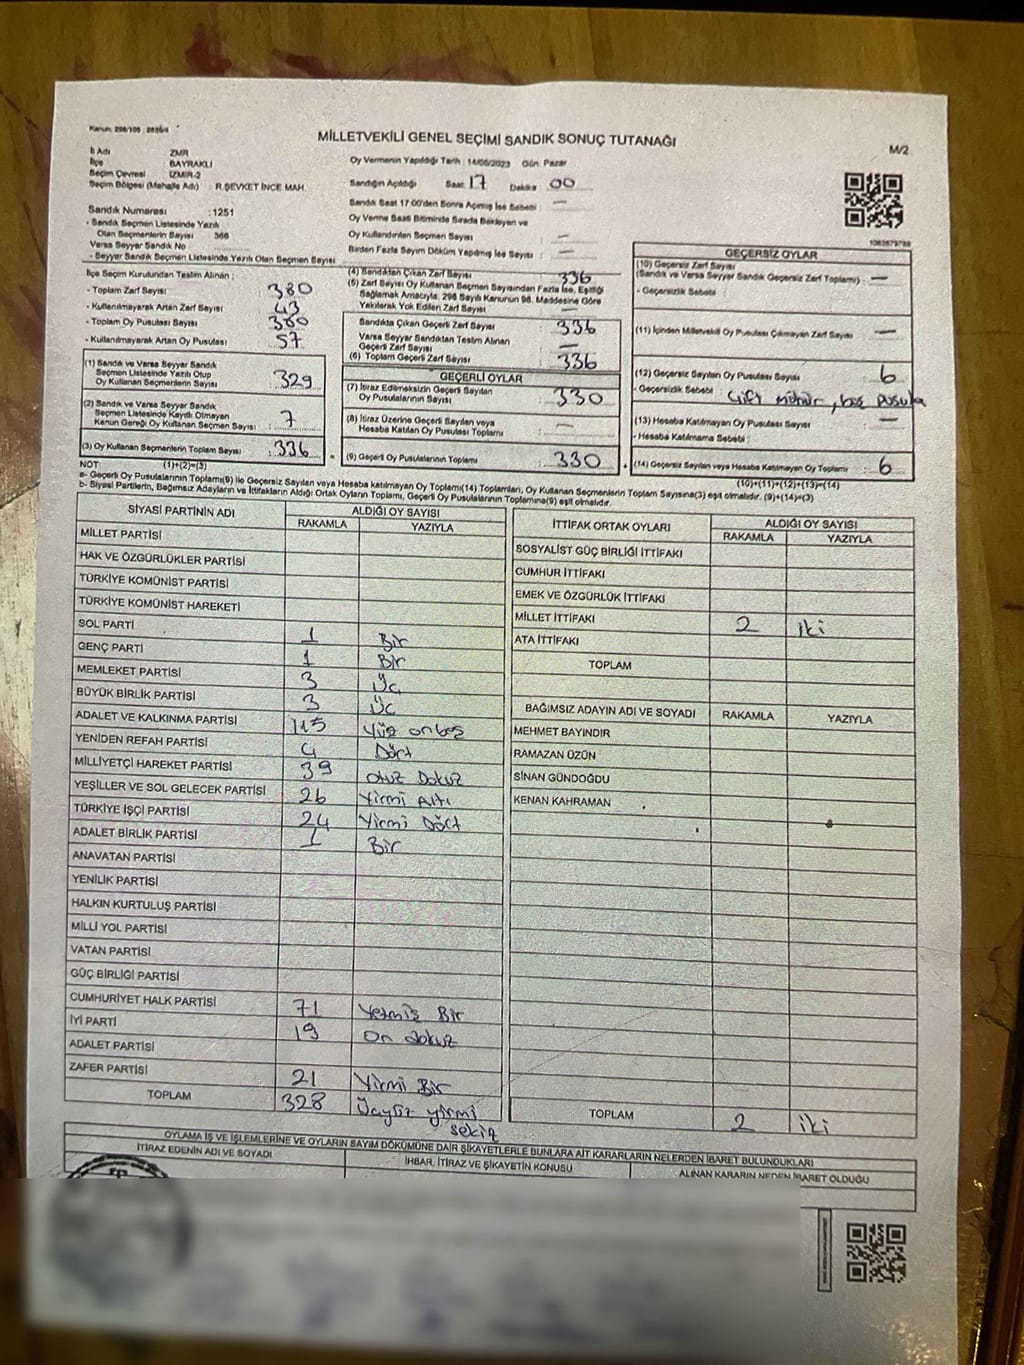 Kanun: 298/105 ; 2839/4
MİLLETVEKİLİ GENEL SEÇİMİ SANDIK SONUÇ TUTANAĞI
M/2
İl Adı ZMR
İlçe BAYRAKLI
Seçim Çevresi İZMİR-2
Seçim Bölgesi (Mahalle Adı) : R.ŞEVKET İNCE MAH.
Oy Vermenin Yapıldığı Tarih : 14/05/2023 Gün: Pazar
Sandığın Açıldığı Saat: 17 Dakika 00
Sandık Saat 17:00'den Sonra Açılmış İse Sebebi : —
Oy Verme Saati Bitiminde Sırada Bekleyen ve
Oy Kullandırılan Seçmen Sayısı : —
Birden Fazla Sayım Döküm Yapılmış İse Sayısı : —
Sandık Numarası : 1251
- Sandık Seçmen Listesinde Yazılı
Olan Seçmenlerin Sayısı 366
Varsa Seyyar Sandık No
- Seyyar Sandık Seçmen Listesinde Yazılı Olan Seçmen Sayısı
İlçe Seçim Kurulundan Teslim Alınan ;
- Toplam Zarf Sayısı : 380
- Kullanılmayarak Artan Zarf Sayısı : 43
- Toplam Oy Pusulası Sayısı : 380
- Kullanılmayarak Artan Oy Pusulası : 57
(1) Sandık ve Varsa Seyyar Sandık
Seçmen Listesinde Yazılı Olup
Oy Kullanan Seçmenlerin Sayısı : 329
(2) Sandık ve Varsa Seyyar Sandık
Seçmen Listesinde Kayıtlı Olmayan
Kanun Gereği Oy Kullanan Seçmen Sayısı : 7
(3) Oy Kullanan Seçmenlerin Toplam Sayısı : 336
(4) Sandıktan Çıkan Zarf Sayısı : 336
(5) Zarf Sayısı Oy Kullanan Seçmen Sayısından Fazla İse, Eşitliği
Sağlamak Amacıyla, 298 Sayılı Kanunun 98. Maddesine Göre
Yakılarak Yok Edilen Zarf Sayısı : —
Sandıkta Çıkan Geçerli Zarf Sayısı : 336
Varsa Seyyar Sandıktan Teslim Alınan
Geçerli Zarf Sayısı : —
(6) Toplam Geçerli Zarf Sayısı : 336
GEÇERLİ OYLAR
(7) İtiraz Edilmeksizin Geçerli Sayılan
Oy Pusulalarının Sayısı : 330
(8) İtiraz Üzerine Geçerli Sayılan veya
Hesaba Katılan Oy Pusulası Toplamı : —
(9) Geçerli Oy Pusulalarının Toplamı : 330
GEÇERSİZ OYLAR
(10) Geçersiz Zarf Sayısı
(Sandık ve Varsa Seyyar Sandık Geçersiz Zarf Toplamı) : —
- Geçersizlik Sebebi :
(11) İçinden Milletvekili Oy Pusulası Çıkmayan Zarf Sayısı : —
(12) Geçersiz Sayılan Oy Pusulası Sayısı : 6
- Geçersizlik Sebebi : Çift mühür, boş pusula
(13) Hesaba Katılmayan Oy Pusulası Sayısı : —
- Hesaba Katılmama Sebebi :
(14) Geçersiz Sayılan veya Hesaba Katılmayan Oy Toplamı : 6
NOT: (1)+(2)=(3)
(10)+(11)+(12)+(13)=(14)
a- Geçerli Oy Pusulalarının Toplamı(9) ile Geçersiz Sayılan veya Hesaba katılmayan Oy Toplamı(14) Toplamları, Oy Kullanan Seçmenlerin Toplam Sayısına(3) eşit olmalıdır. (9)+(14)=(3)
b- Siyasi Partilerin, Bağımsız Adayların ve İttifakların Aldığı Ortak Oyların Toplamı, Geçerli Oy Pusulalarının Toplamına(9) eşit olmalıdır.
SİYASİ PARTİNİN ADI ALDIĞI OY SAYISI
RAKAMLA YAZIYLA
MİLLET PARTİSİ
HAK VE ÖZGÜRLÜKLER PARTİSİ
TÜRKİYE KOMÜNİST PARTİSİ
TÜRKİYE KOMÜNİST HAREKETİ
SOL PARTİ 1 Bir
GENÇ PARTİ 1 Bir
MEMLEKET PARTİSİ 3 Üç
BÜYÜK BİRLİK PARTİSİ 3 Üç
ADALET VE KALKINMA PARTİSİ 115 Yüz onbeş
YENİDEN REFAH PARTİSİ 4 Dört
MİLLİYETÇİ HAREKET PARTİSİ 39 otuz Dokuz
YEŞİLLER VE SOL GELECEK PARTİSİ 26 Yirmi Altı
TÜRKİYE İŞÇİ PARTİSİ 24 Yirmi Dört
ADALET BİRLİK PARTİSİ 1 Bir
ANAVATAN PARTİSİ
YENİLİK PARTİSİ
HALKIN KURTULUŞ PARTİSİ
MİLLİ YOL PARTİSİ
VATAN PARTİSİ
GÜÇ BİRLİĞİ PARTİSİ
CUMHURİYET HALK PARTİSİ 71 Yetmiş Bir
İYİ PARTİ 19 On dokuz
ADALET PARTİSİ
ZAFER PARTİSİ 21 Yirmi Bir
TOPLAM 328 Üçyüz yirmi sekiz
İTTİFAK ORTAK OYLARI ALDIĞI OY SAYISI
RAKAMLA YAZIYLA
SOSYALİST GÜÇ BİRLİĞİ İTTİFAKI
CUMHUR İTTİFAKI
EMEK VE ÖZGÜRLÜK İTTİFAKI
MİLLET İTTİFAKI 2 iki
ATA İTTİFAKI
TOPLAM
BAĞIMSIZ ADAYIN ADI VE SOYADI RAKAMLA YAZIYLA
MEHMET BAYINDIR
RAMAZAN ÜZÜN
SİNAN GÜNDOĞDU
KENAN KAHRAMAN
TOPLAM 2 iki
OYLAMA İŞ VE İŞLEMLERİNE VE OYLARIN SAYIM DÖKÜMÜNE DAİR ŞİKAYETLERLE BUNLARA AİT KARARLARIN NELERDEN İBARET BULUNDUKLARI
İTİRAZ EDENİN ADI VE SOYADI İHBAR, İTİRAZ VE ŞİKAYETİN KONUSU ALINAN KARARIN NEDEN İBARET OLDUĞU